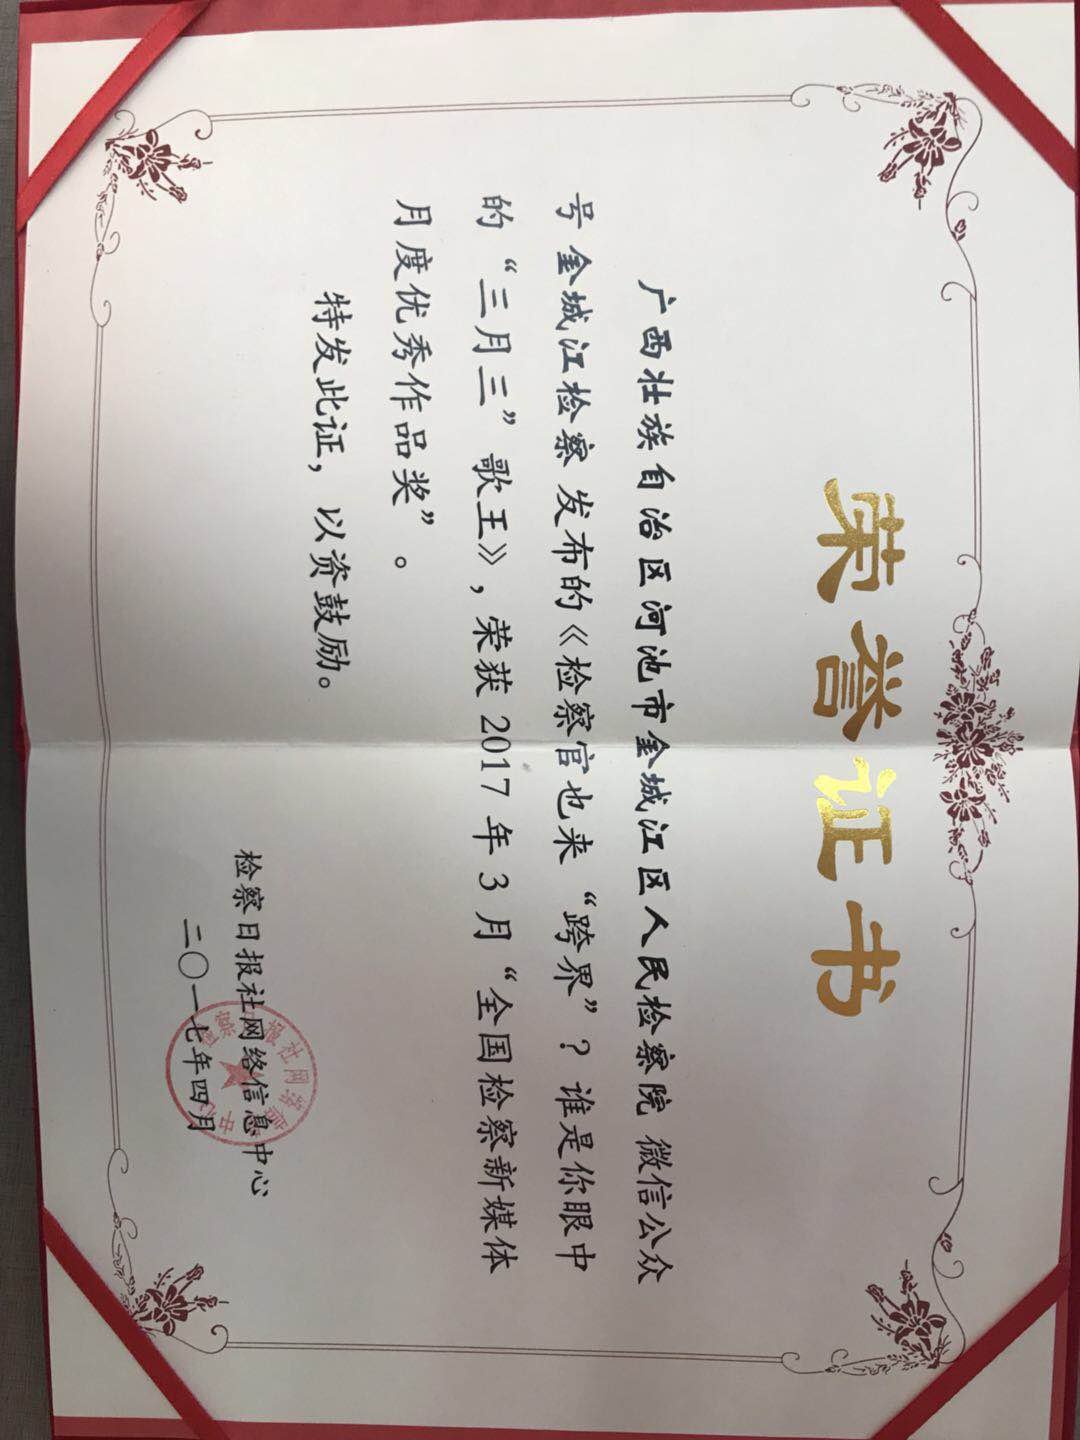 荣誉证书
广西壮族自治区河池市金城江区人民检察院 微信公众
号 金城江检察 发布的《检察官也来“跨界”？谁是你眼中
的“三月三”歌王》，荣获 2017 年 3 月“全国检察新媒体
月度优秀作品奖”。
特发此证，以资鼓励。
检察日报社网络信息中心
二〇一七年四月